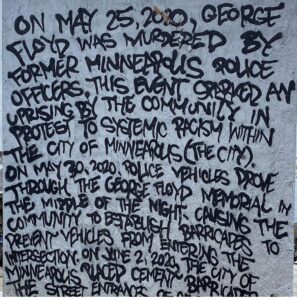 ON MAY 25, 2020, GEORGE
FLOYD WAS MURDERED BY
FORMER MINNEAPOLIS POLICE
OFFICERS. THIS EVENT SPARKED AN
UPRISING BY THE COMMUNITY IN
PROTEST TO SYSTEMIC RACISM WITHIN
THE CITY OF MINNEAPOLIS (THE CITY).
ON MAY 30, 2020, POLICE VEHICLES DROVE
THROUGH THE GEORGE FLOYD MEMORIAL IN
THE MIDDLE OF THE NIGHT, CAUSING THE
COMMUNITY TO ESTABLISH BARRICADES TO
PREVENT VEHICLES FROM ENTERING THE
INTERSECTION. ON JUNE 2, 2020, THE CITY OF
MINNEAPOLIS PLACED CEMENT BARRICADES
THE STREET ENTRANCES OF